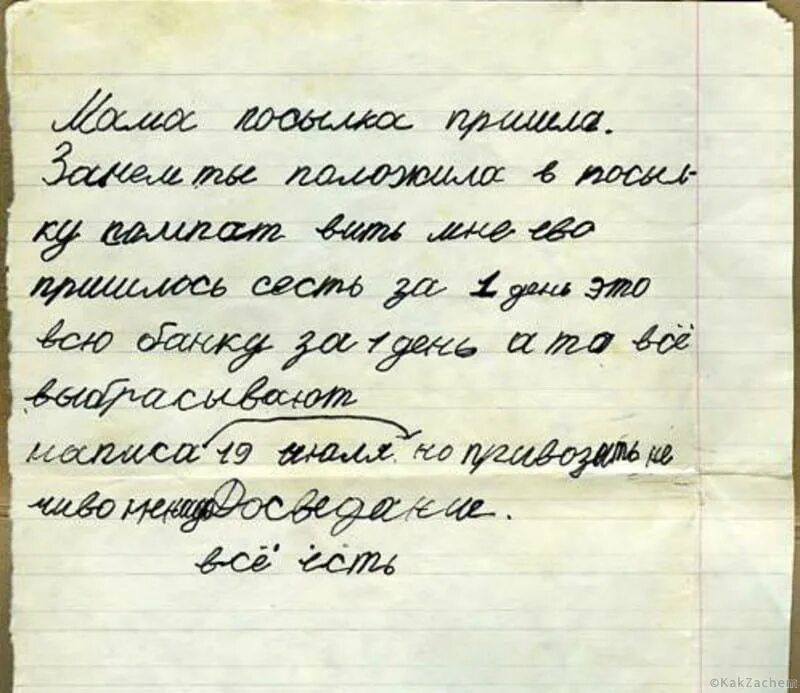 Мама посылка пришла.
Зачем ты положила в посыл-
ку компат вить мне ево
пришлось сесть за 1 день это
всю банку за 1 день а то всё
выбрасывают
написа 19 июля. но привозить не
чиво не Досведание.
всё есть
©KakZachem